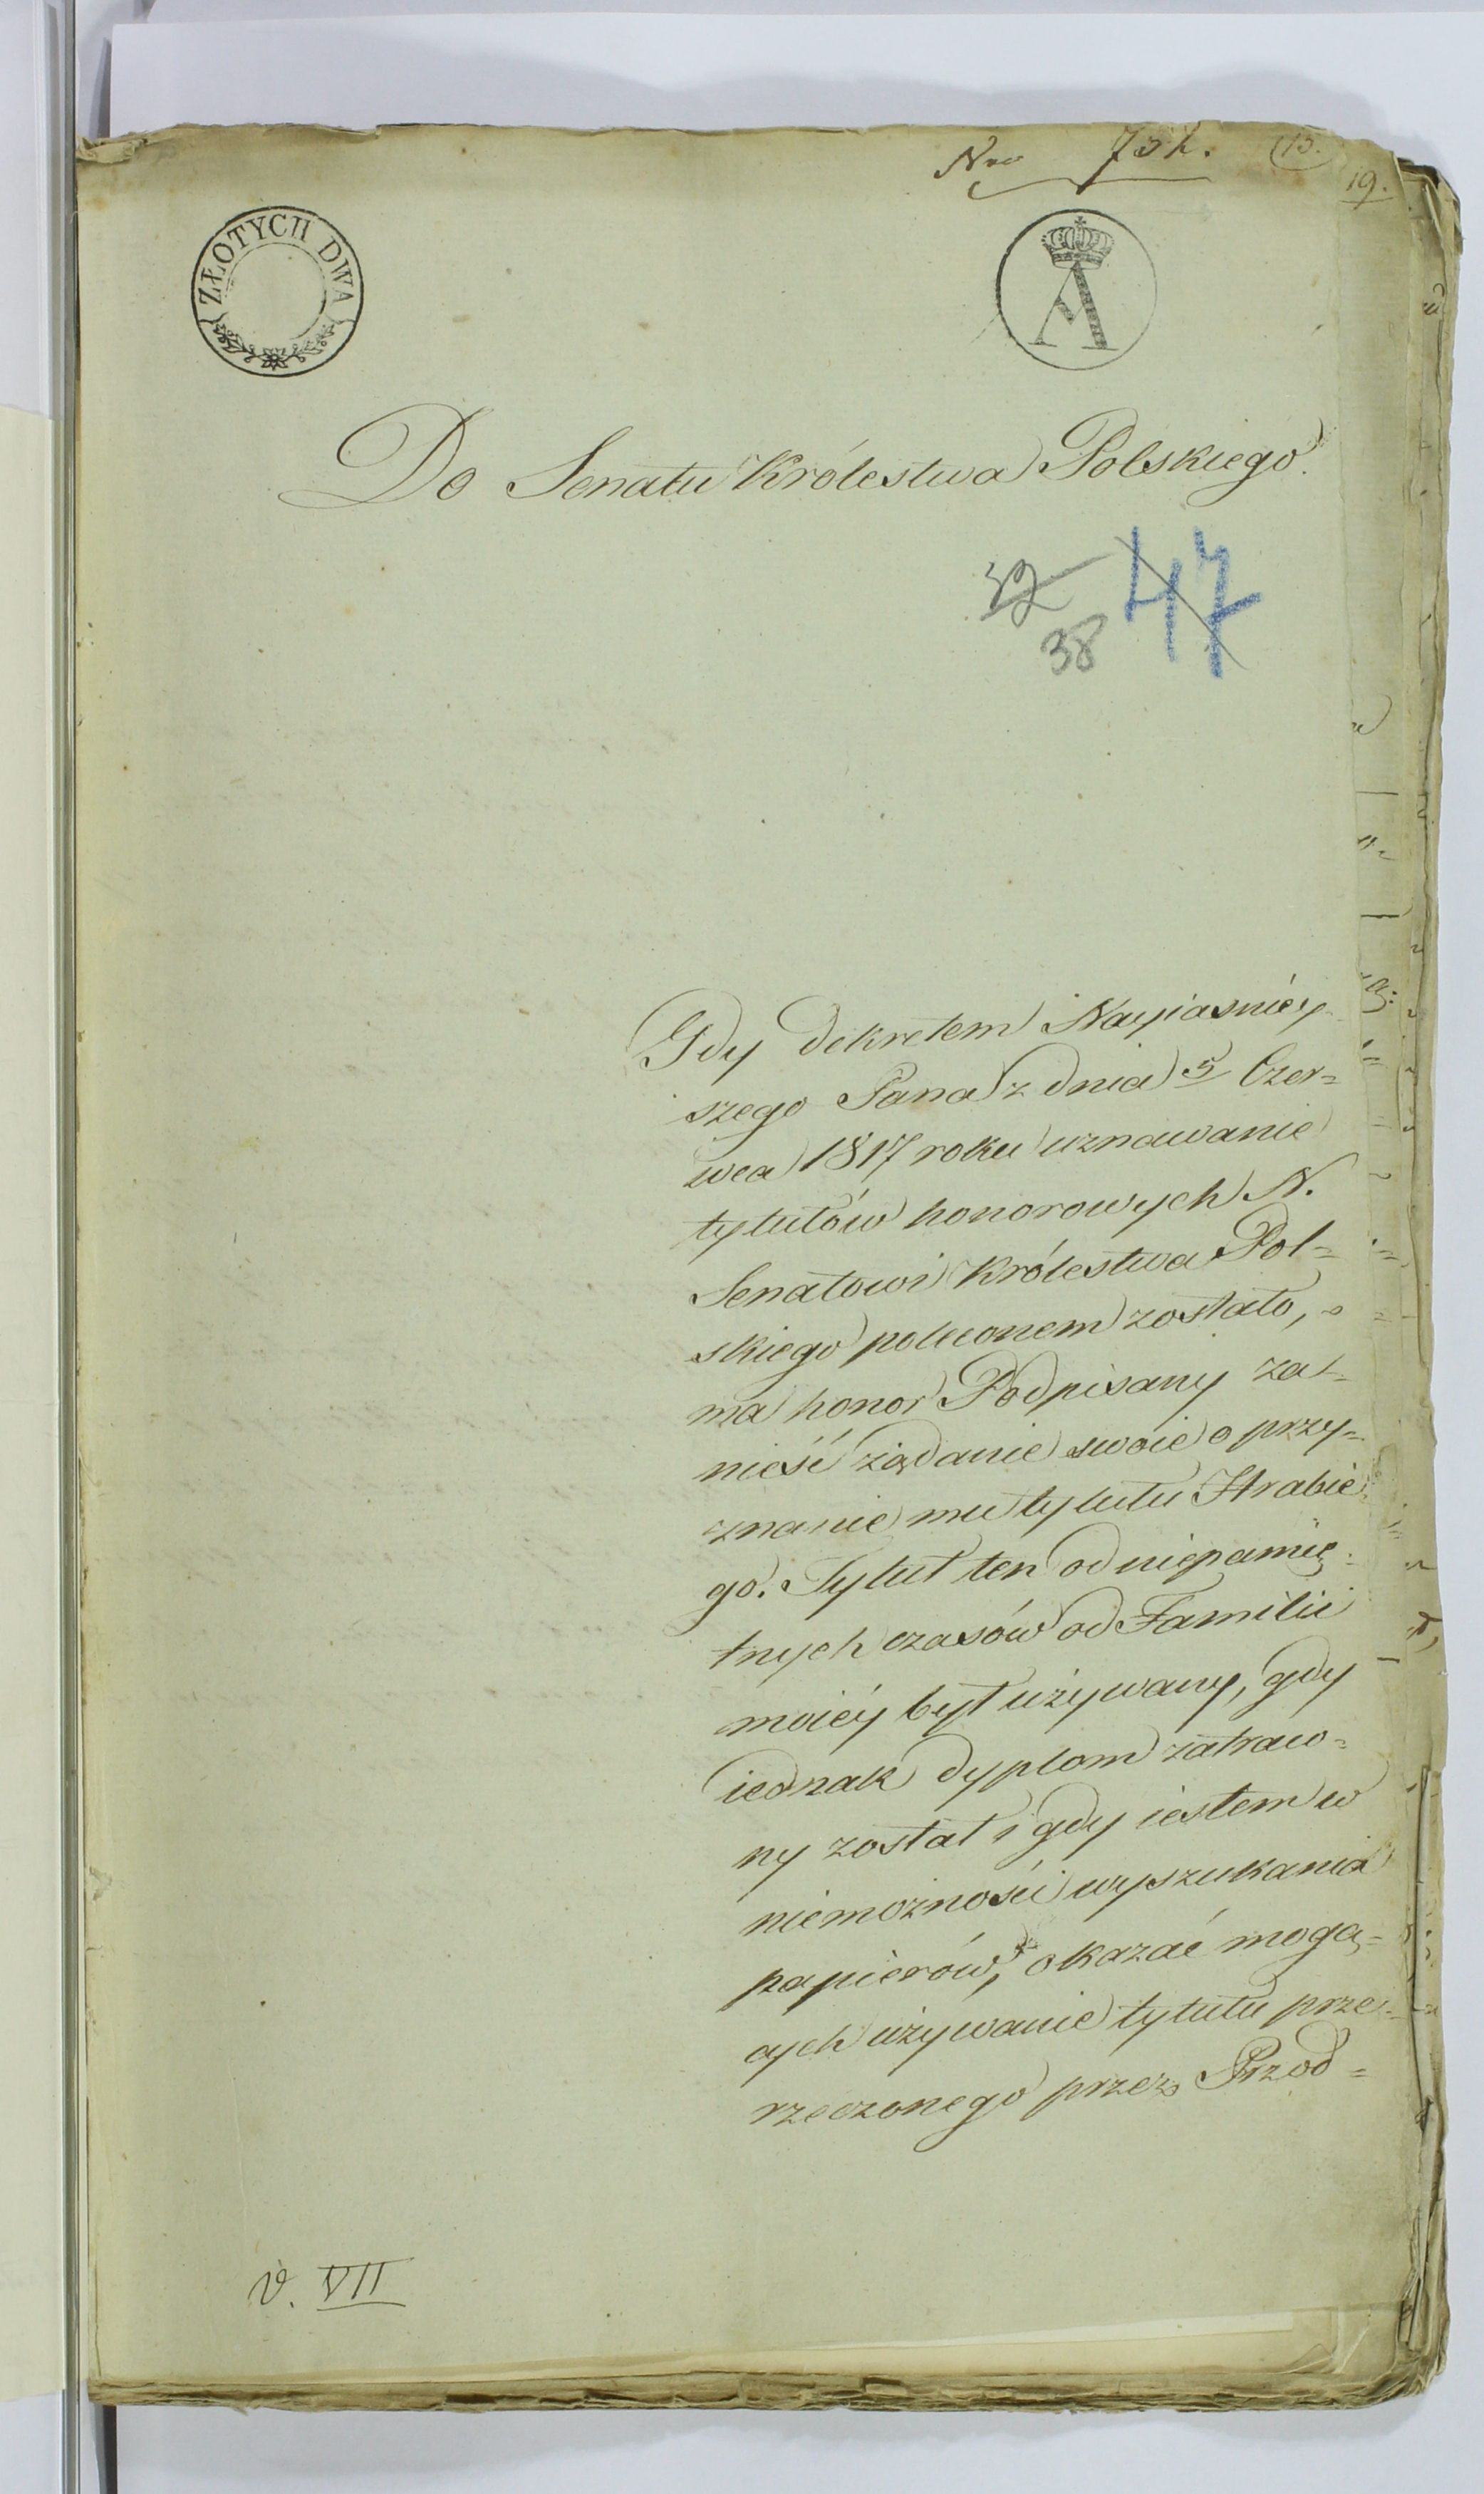 Nro 732.
13.
19.
ZŁOTYCH DWA
A
Do Senatu Królestwa Polskiego.
32 47
38
Gdy dekretem Nayiasniéy
szego Pana z dnia 5 Czer=
wca 1817 roku uznawanie
tytułów honorowych N.
Senatowi Królestwa Pol=
skiego poleconem zostało,
ma honor Podpisany za=
nieść żądanie swoie o przy=
znanie mu tytułu Hrabie
go. Tytuł ten od niepamię
tnych czasów od Familii
moiéy był używany, gdy
iednak dyplom zatraco=
ny został i gdy iestem w
niemożności wyszukania
papierów, okazać mogą=
cych używanie tytułu prze=
rzeczonego przez Przod=
V. VII